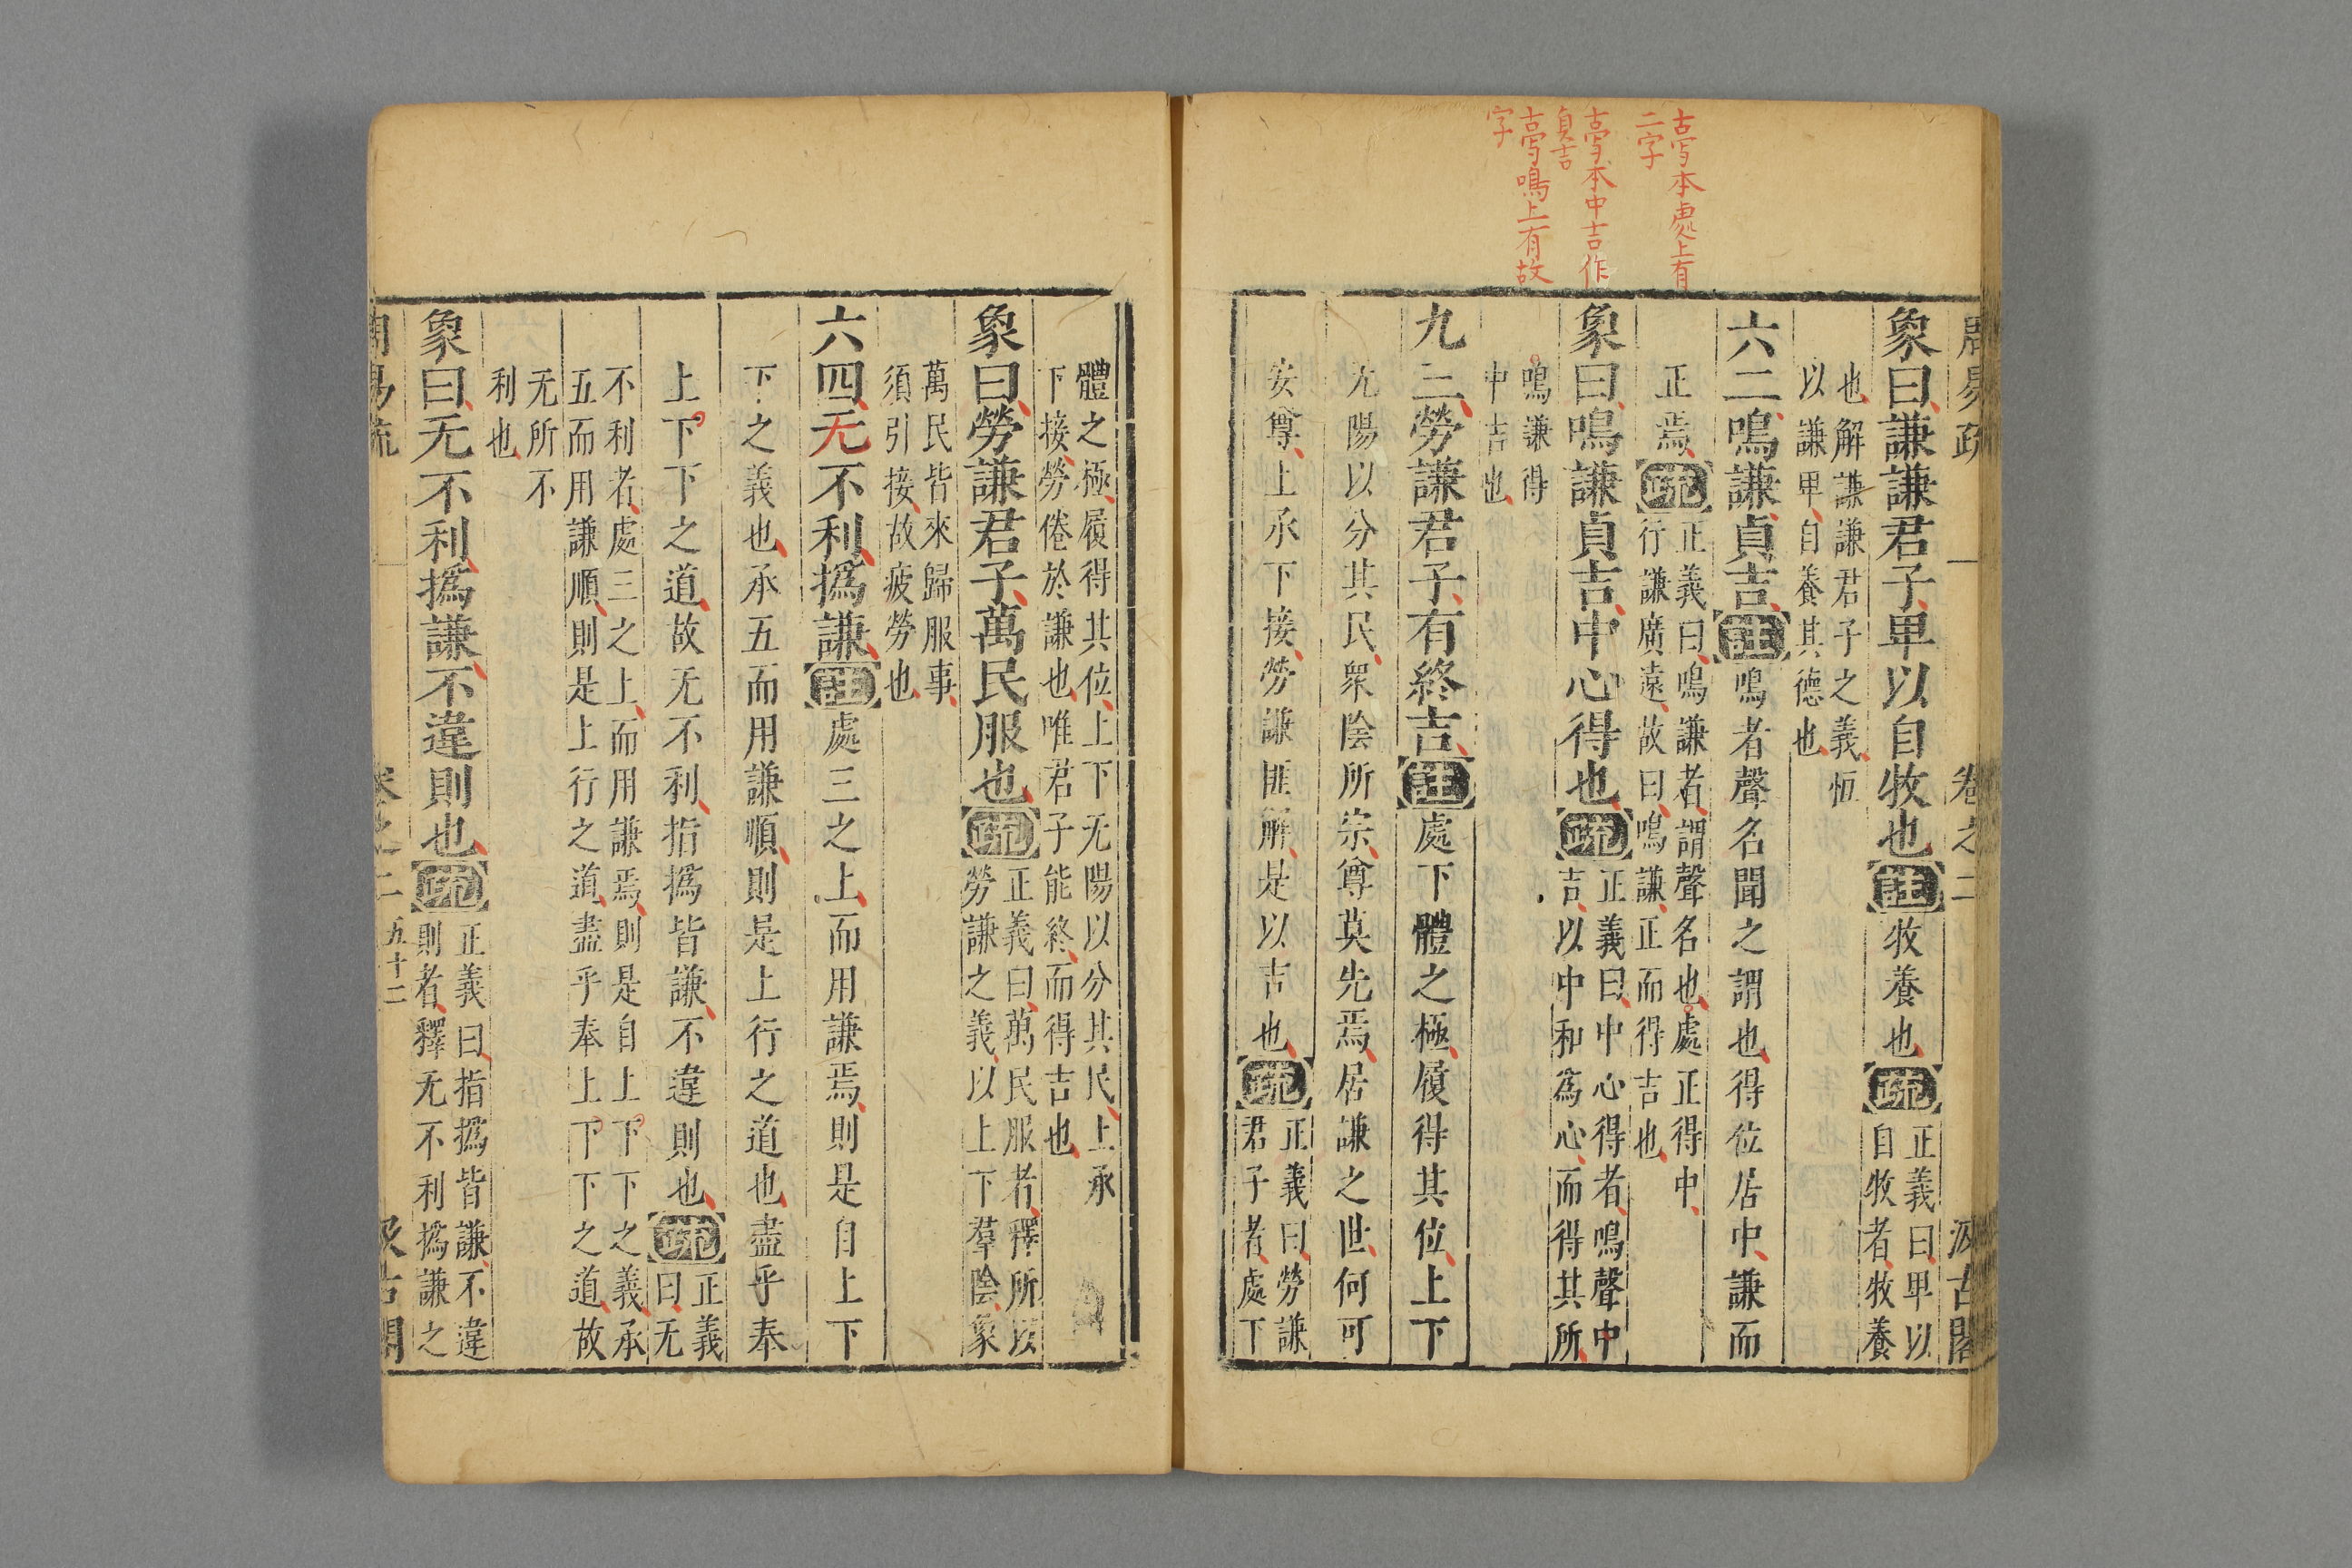 古寫本處上有
二字
古寫本中吉作
貞吉
古寫鳴上有故
字
周易疏　卷之二　汲古閣
象曰謙謙君子卑以自牧也註牧養也疏正義曰卑以
自牧者牧養
也解謙謙君子之義恒
以謙卑自養其德也
六二鳴謙貞吉註鳴者聲名聞之謂也得位居中謙而
正焉疏正義曰鳴謙者謂聲名也處正得中
行謙廣遠故曰鳴謙正而得吉也
象曰鳴謙貞吉中心得也疏正義曰中心得者鳴聲中
吉以中和爲心而得其所
鳴謙得
中吉也
九三勞謙君子有終吉註處下體之極履得其位上下
无陽以分其民衆陰所宗尊莫先焉居謙之世何可
安尊上承下接勞謙匪解是以吉也疏正義曰勞謙
君子者處下
體之極履得其位上下无陽以分其民上承
下接勞倦於謙也唯君子能終而得吉也
象曰勞謙君子萬民服也疏正義曰萬民服者釋所以
勞謙之義以上下羣陰象
萬民皆來歸服事
須引接故疲勞也
六四无不利撝謙註處三之上而用謙焉則是自上下
下之義也承五而用謙順則是上行之道也盡乎奉
上下下之道故无不利指撝皆謙不違則也疏正義
曰无
不利者處三之上而用謙焉則是自上下下之義承
五而用謙順則是上行之道盡乎奉上下下之道故
无所不
利也
象曰无不利撝謙不違則也疏正義曰指撝皆謙不違
則者釋无不利撝謙之
周易疏　卷之二　五十二　汲古閣